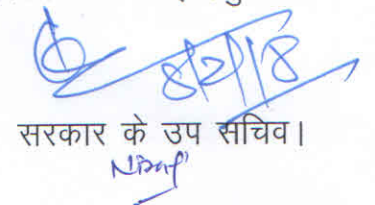 8/2/18
सरकार के उप सचिव।